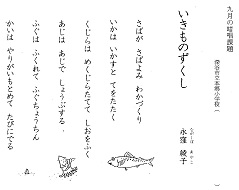 九月の暗唱課題
深谷市立本郷小学校（　　　）
いきものづくし
ながくぼ　あやこ
永窪　綾子
さばが　さばよみ　わかづくり
いかは　いかすと　てをたたく
くじらは　めくじらたてて　しおをふく
あじは　あじで　しょうぶする
ふぐは　ふくれて　ふぐちょうちん
かいは　やりがいもとめて　たびにでる